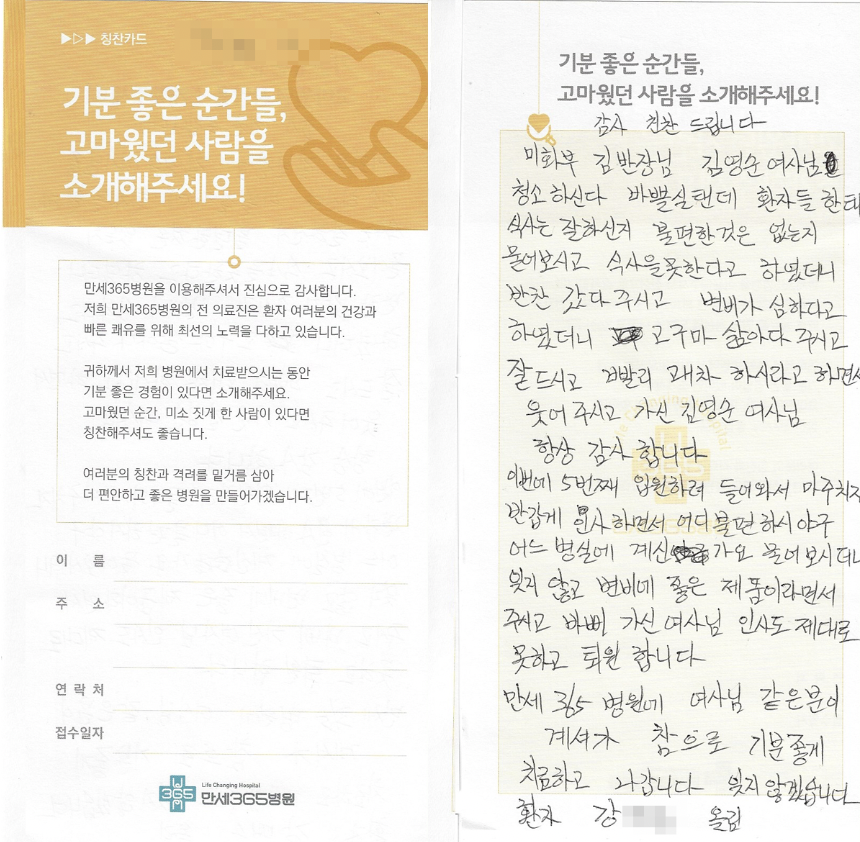 ▶▷▶ 칭찬카드
기분 좋은 순간들,
고마웠던 사람을
소개해주세요!
만세365병원을 이용해주셔서 진심으로 감사합니다.
저희 만세365병원의 전 의료진은 환자 여러분의 건강과
빠른 쾌유를 위해 최선의 노력을 다하고 있습니다.
귀하께서 저희 병원에서 치료받으시는 동안
기분 좋은 경험이 있다면 소개해주세요.
고마웠던 순간, 미소 짓게 한 사람이 있다면
칭찬해주셔도 좋습니다.
여러분의 칭찬과 격려를 밑거름 삼아
더 편안하고 좋은 병원을 만들어가겠습니다.
이 름
주 소
연 락 처
접수일자
365
Life Changing Hospital
만세365병원
기분 좋은 순간들,
고마웠던 사람을 소개해주세요!
감사 친찬 드립니다
미화부 김반장님 김영순 여사님
청소하신다 바쁠실텐데 환자들 한테
식사는 잘하신지 불편한것은 없는지
물어보시고 식사을못한다고 하였더니
반찬 갔다주시고 변비가 심하다고
하였더니 고구마 삶아다 주시고
잘드시고 빨리 쾌차 하시라고 하면서
웃어주시고 가신 김영순 여사님
항상 감사 합니다
이번에 5번째 입원하려 들어와서 마주치자
반갑게 인사하면서 어디불편하시야구
어느 병실에 계신가요 물어보시더니
잊지 않고 변비에 좋은 제품이라면서
주시고 바삐 가신여사님 인사도 제대로
못하고 퇴원 합니다
만세 365 병원에 여사님 같은분이
계셔가 참으로 기분좋게
치료하고 나갑니다 잊지않겠습니다
환자 강 올림